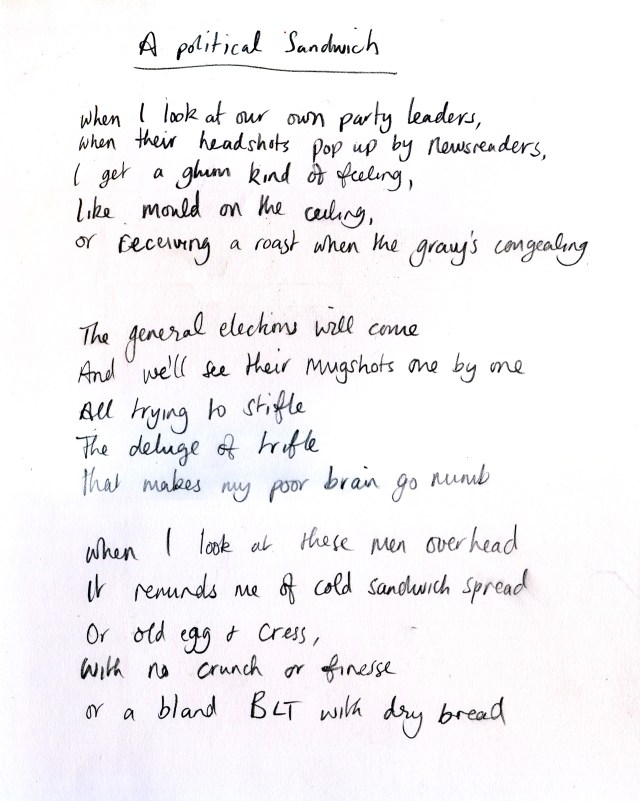 A political Sandwich
when I look at our own party leaders,
when their headshots pop up by Newsreaders,
I get a glum kind of feeling,
like mould on the ceiling,
or receiving a roast when the gravy's congealing
The general elections will come
And we'll see their mugshots one by one
All trying to stifle
The deluge of trifle
that makes my poor brain go numb
when I look at these men overhead
It reminds me of cold sandwich spread
Or old egg & cress,
with no crunch or finesse
or a bland BLT with dry bread